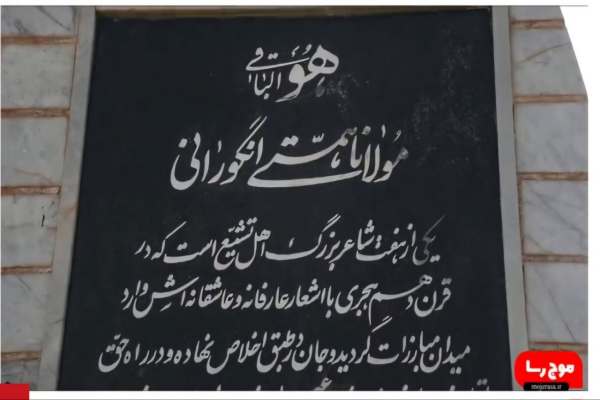 هو الباقی
مولانا همتی انگورانی
یکی از هفت شاعر بزرگ اهل تشیع است که در
قرن دهم هجری با اشعار عارفانه و عاشقانه اش وارد
میدان مبارزات گردید و جان در طبق اخلاص نهاده و در راه حق
موج رسا
mojerasa.ir